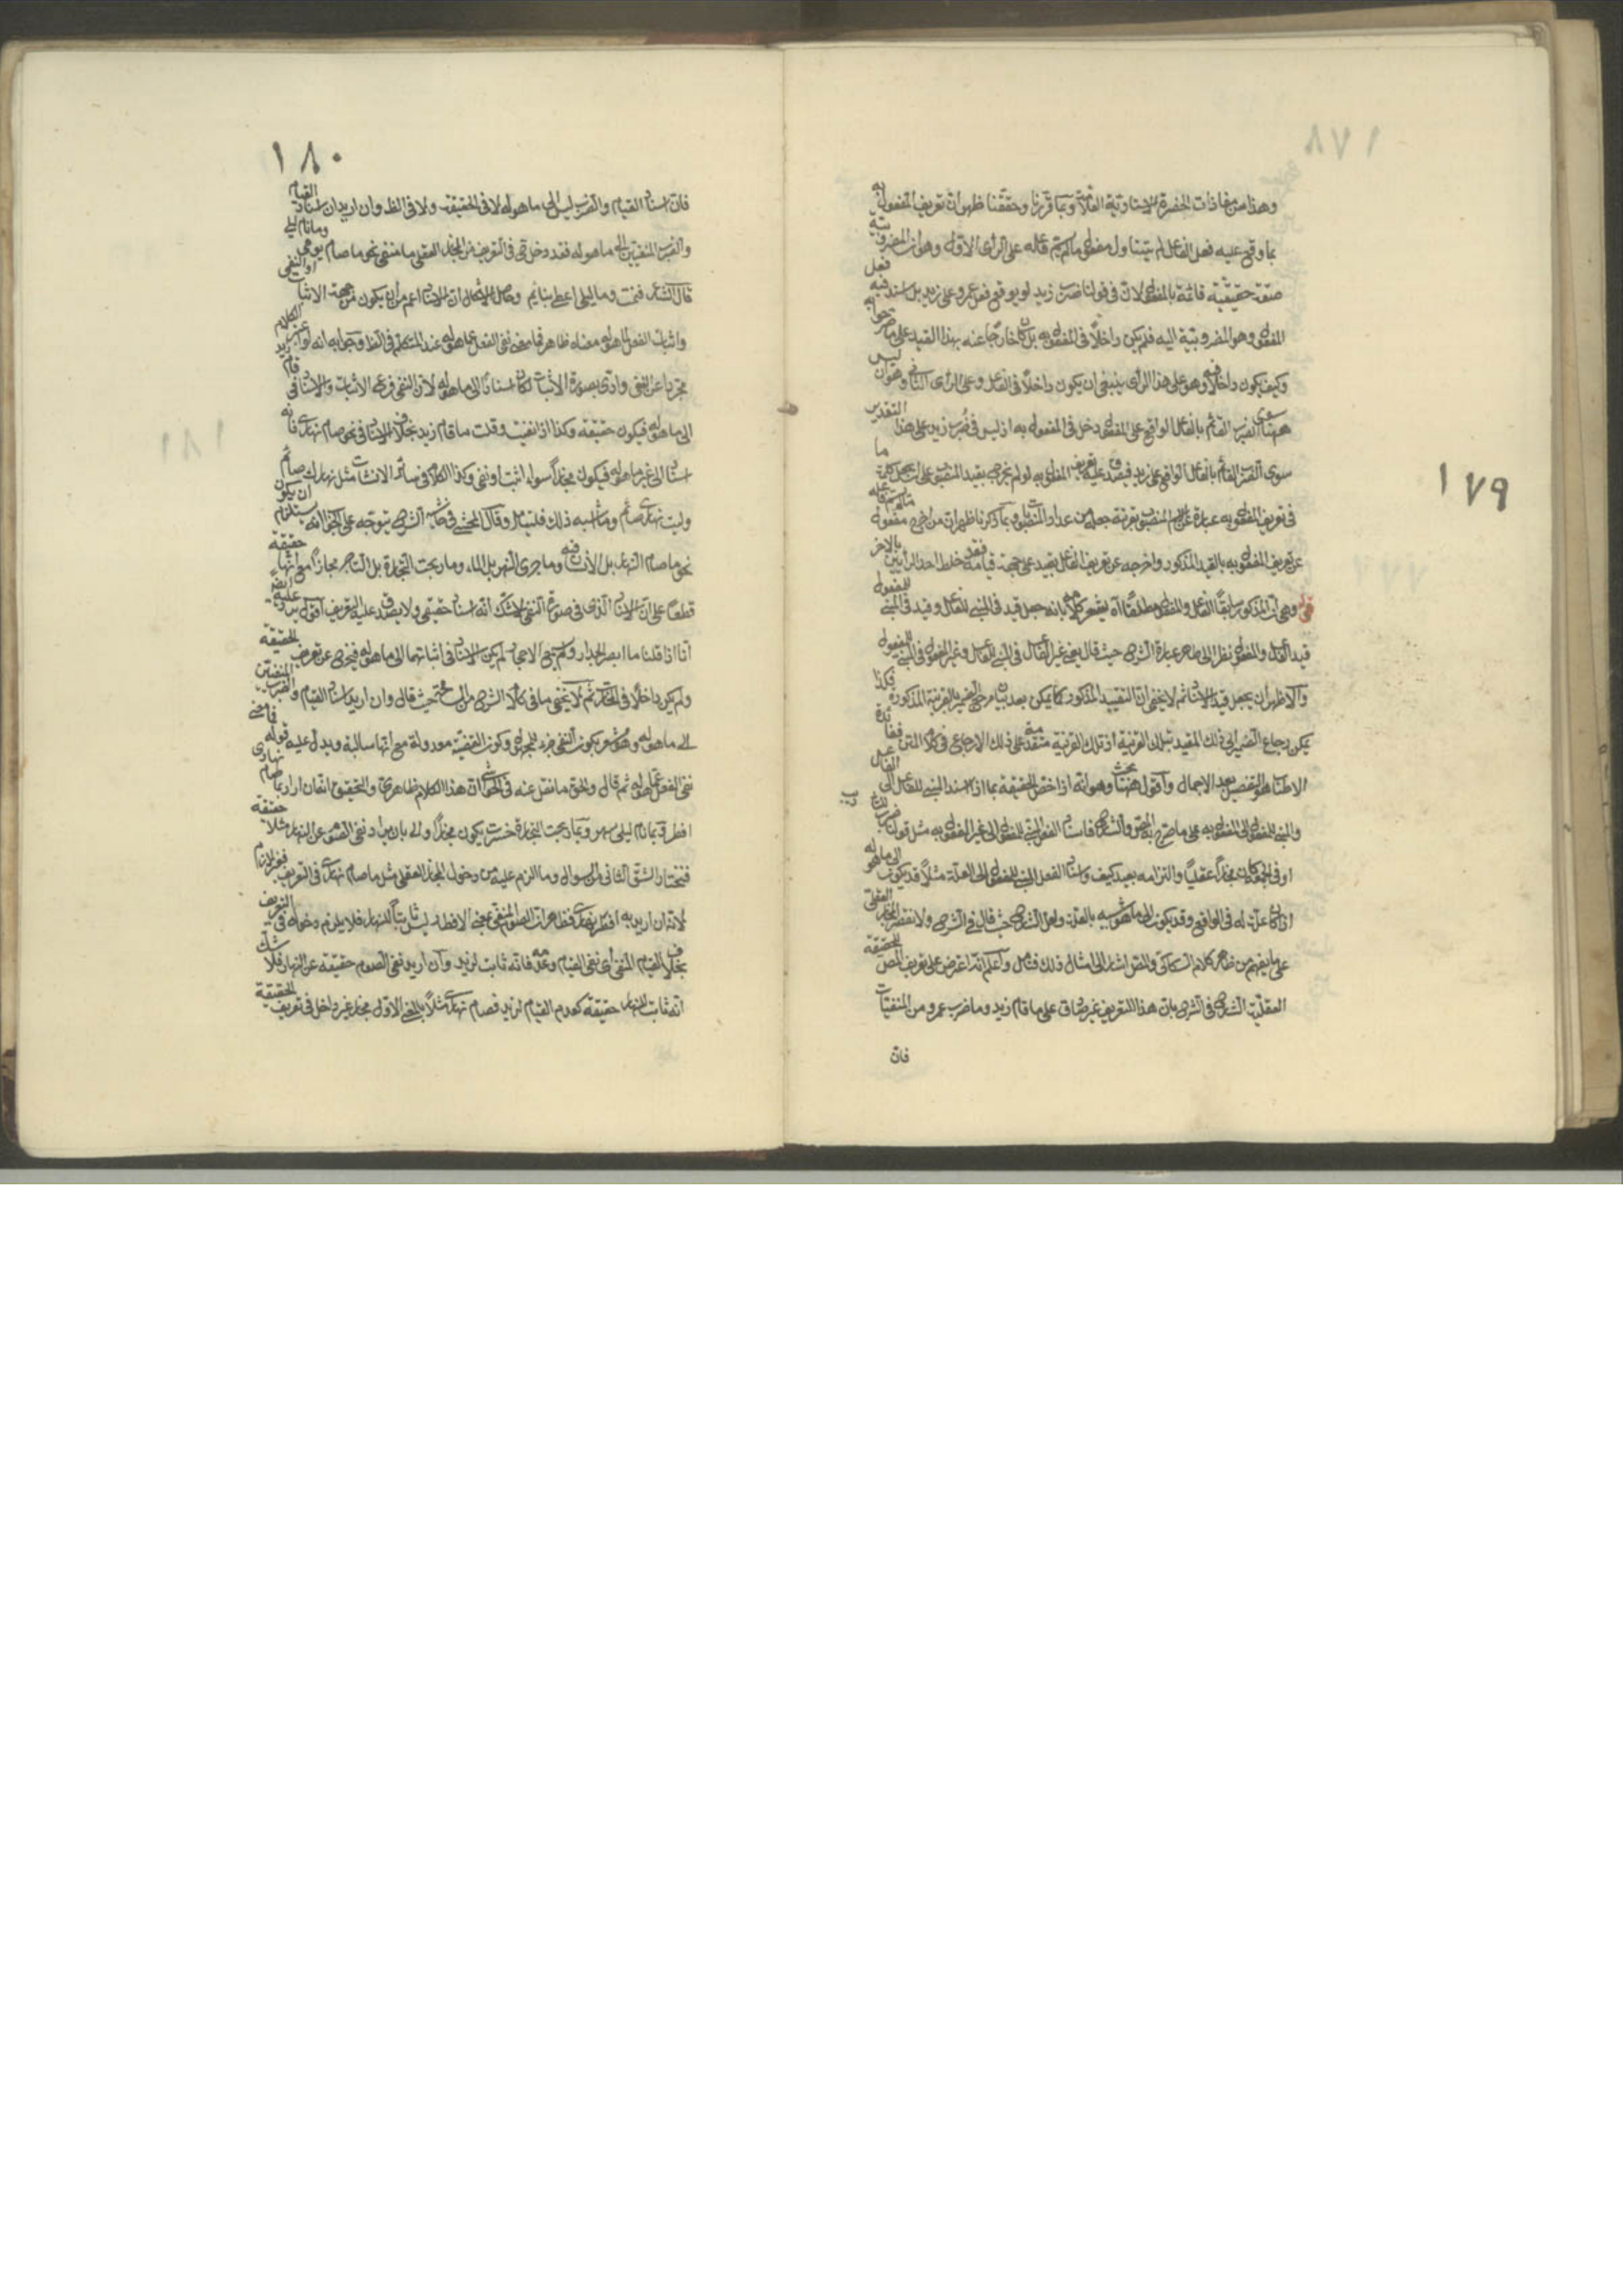 ١٧٩
وهذا من مفاذات الحضرة الاستاوتية العلامة وبما قررنا وحققنا ظهر ان تعريف المفعول به
بما وقع عليه فعل الفاعل لم يتناول مفعول ما لم يسم فاعله على الرأى الاول وهو ان المضروبية
صفة حقيقية قائمة بالمفعول لان فى قولنا ضرب زيد لو يوقع فعل عمرو على زيد بل اسند فيه فعل
المفعول وهو المضروبية اليه فلم يكن داخلاً فى المفعول به بل كان خارجًا عنه بهذا القيد على ما صرحوا به
وكيف يكون داخلاً فيه وهو على هذا الرأى ينبغى ان يكون داخلاً فى الفاعل وعلى الرأى الثانى وهو ان ليس
ههنا سوى الضرب القائم بالفاعل الواقع على المفعول دخل فى المفعول به اذ ليس فى ضُرب زيد على هذا التقدير
سوى الضرب القائم بالفاعل الواقع على زيد فيصدق عليه تعريف المفعول به لو لم يخرج بقيد المنصوب على ان يجعل كلمة ما
فى تعريف المفعول به عبارة عن الاسم المنصوب بقرينة جعله من عداد المنصوبات وبما ذكرنا ظهر ان من اخرج مفعول ما لم يسم فاعله
عن تعريف المفعول به بالقيد المذكور واخرجه عن تعريف الفاعل بقيد على جهة قيامه فقد خلط احد الرأيين بالاخر
قوله وهى ان المذكور سابقًا الفاعل والمفعول مطلقًا اه يشعر كلامه بانه جعل قيد فى المبنى للفاعل وقيد فى المبنى للمفعول
قيد الفاعل والمفعول نظرا الى ظاهر عبارة الشرح حيث قال يعنى غير الفاعل فى المبنى للفاعل وغير المفعول فى المبنى للمفعول
والاظهر ان يجعل قيد الاسناد ثم لا يخفى ان التقييد المذكور كما يمكن بعد بيان مرجع الضمير بالقرينة المذكورة فكذا
يمكن رجاع الضمير الى ذلك المقيد بتلك القرينة اذ تلك القرينة متقدمة على ذلك الارجاع فى كلام المتن ففائدة
الاطناب هو التفصيل بعد الاجمال واقول ههنا بحث وهو انه اذا خص الحقيقة بما اذا اسند المبنى للفاعل الى الفاعل
والمبنى للمفعول الى المفعول به على ما صرح به المص والشارح فاسناد الفعل المبنى للمفعول الى غير المفعول به مثل قولنا ضرب
او فى الجمعة كان مجازاً عقلياً والتزامه بعيد كيف واسناد الفعل المبنى للمفعول الى العلة مثلاً قد يكون الى ما هو له
اذا كان علة له فى الواقع وقد يكون الى ما هو شبيه بالعلة ولعل الشارح حيث قال فى الشرح ولا نقصر المجاز العقلى
على ما يفهم من ظاهر كلام السكاكى والمص اشار الى امثال ذلك فتأمل واعلم انه اعترض على تعريف المص للحقيقة
العقلية الشارح فى الشرح بان هذا التعريف غير صادق على ما قام زيد وما ضرب عمرو من المنفيات
فان
١٨٠
فان اسناد القيام والضرب ليس الى ما هو له لا فى الحقيقة ولا فى الظ وان اريد ان اسناد القيام
والضرب المنفيين الى ما هو له فقد دخل ح فى التعريف من المجاز العقلى ما منفى نحو ما صام يومى وما نام ليلى
قال الشاعر فنمت وما ليل المطى بنائم وحاصل الاشكال ان الاسناد اعم من ان يكون من جهة الاثبات او النفى
واثبات الفعل لما هو له معناه ظاهر فما معنى نفى الفعل عما هو له عند المتكلم فى الظ وجوابه انه لو اعتبر الكلام
مجردا عن النفى وادى بصورة الاثبات لكان اسنادًا الى ما هو له لان النفى فرع الاثبات والاسناد فى قام زيد
الى ما هو له فيكون حقيقة وكذا اذا نفيت وقلت ما قام زيد بخلاف الاسناد فى نحو صام نهارى فانه
اسناد الى غير ما هو له فيكون مجازاً سواء اثبت او نفى وكذا الكلام فى سائر الانشاآت مثل نهارك صائم
وليت نهارى صائم وما اشبه ذلك فليتأمل وقال المحشى فى حاشية الشرح يتوجه على الجواب انه يستلزم ان يكون
نحو ما صام النهار بل الانسان فيه وما جرى النهر بل الماء وما ربحت التجارة بل التاجر مجازاً مع انها حقيقة
قطعًا على ان الاسناد الذى فى صورة النفى لا شك انه اسناد حقيقى ولا يصدق عليه التعريف اقول يرد عليه ايضا
انا اذا قلنا ما ابصر الجدار ولم يكن الاسناد فى اثباتهما الى ما هو له فيخرج عن تعريف الحقيقة
ولم يكن داخلاً فى المجاز ثم لا يخفى ما فى كلام الشارح من المسامحة حيث قال وان اريد اسناد القيام والضرب المنفيين
الى ما هو له وهو مشعر بكون النفى جزء للمحمول وكون القضية معدولة مع انها سالبة ويدل عليه قوله فما معنى
نفى الفعل عما هو له ثم قال والحق ما نقل عنه فى الحواشى ان هذا الكلام ظاهرى والتحقيق انه ان اراد بما صام نهارى
افطر وبما نام ليلى سهر وبما ربحت التجارة خسرت يكون مجازًا والى بان يراد نفى الصوم عن النهار مثلا حقيقة
فنختار الشق الثانى من السؤال وما الزم عليه من دخول المجاز العقلى مثل ما صام نهارى فى التعريف فغير لازم
لانه ان اريد به افطر نهارى فظاهر ان الصوم المنفى بمعنى الافطار ليس ثابتاً للنهار فلا يلزم دخوله فى التعريف
بخلاف القيام المنفى اى نفى القيام وعدمه فانه ثابت لزيد وان اريد نفى الصوم حقيقة عن النهار فلا شك
انه ثابت للنهار حقيقة كعدم القيام لزيد فصام نهارى مثلاً بالمعنى الاول مجاز غير داخل فى تعريف الحقيقة